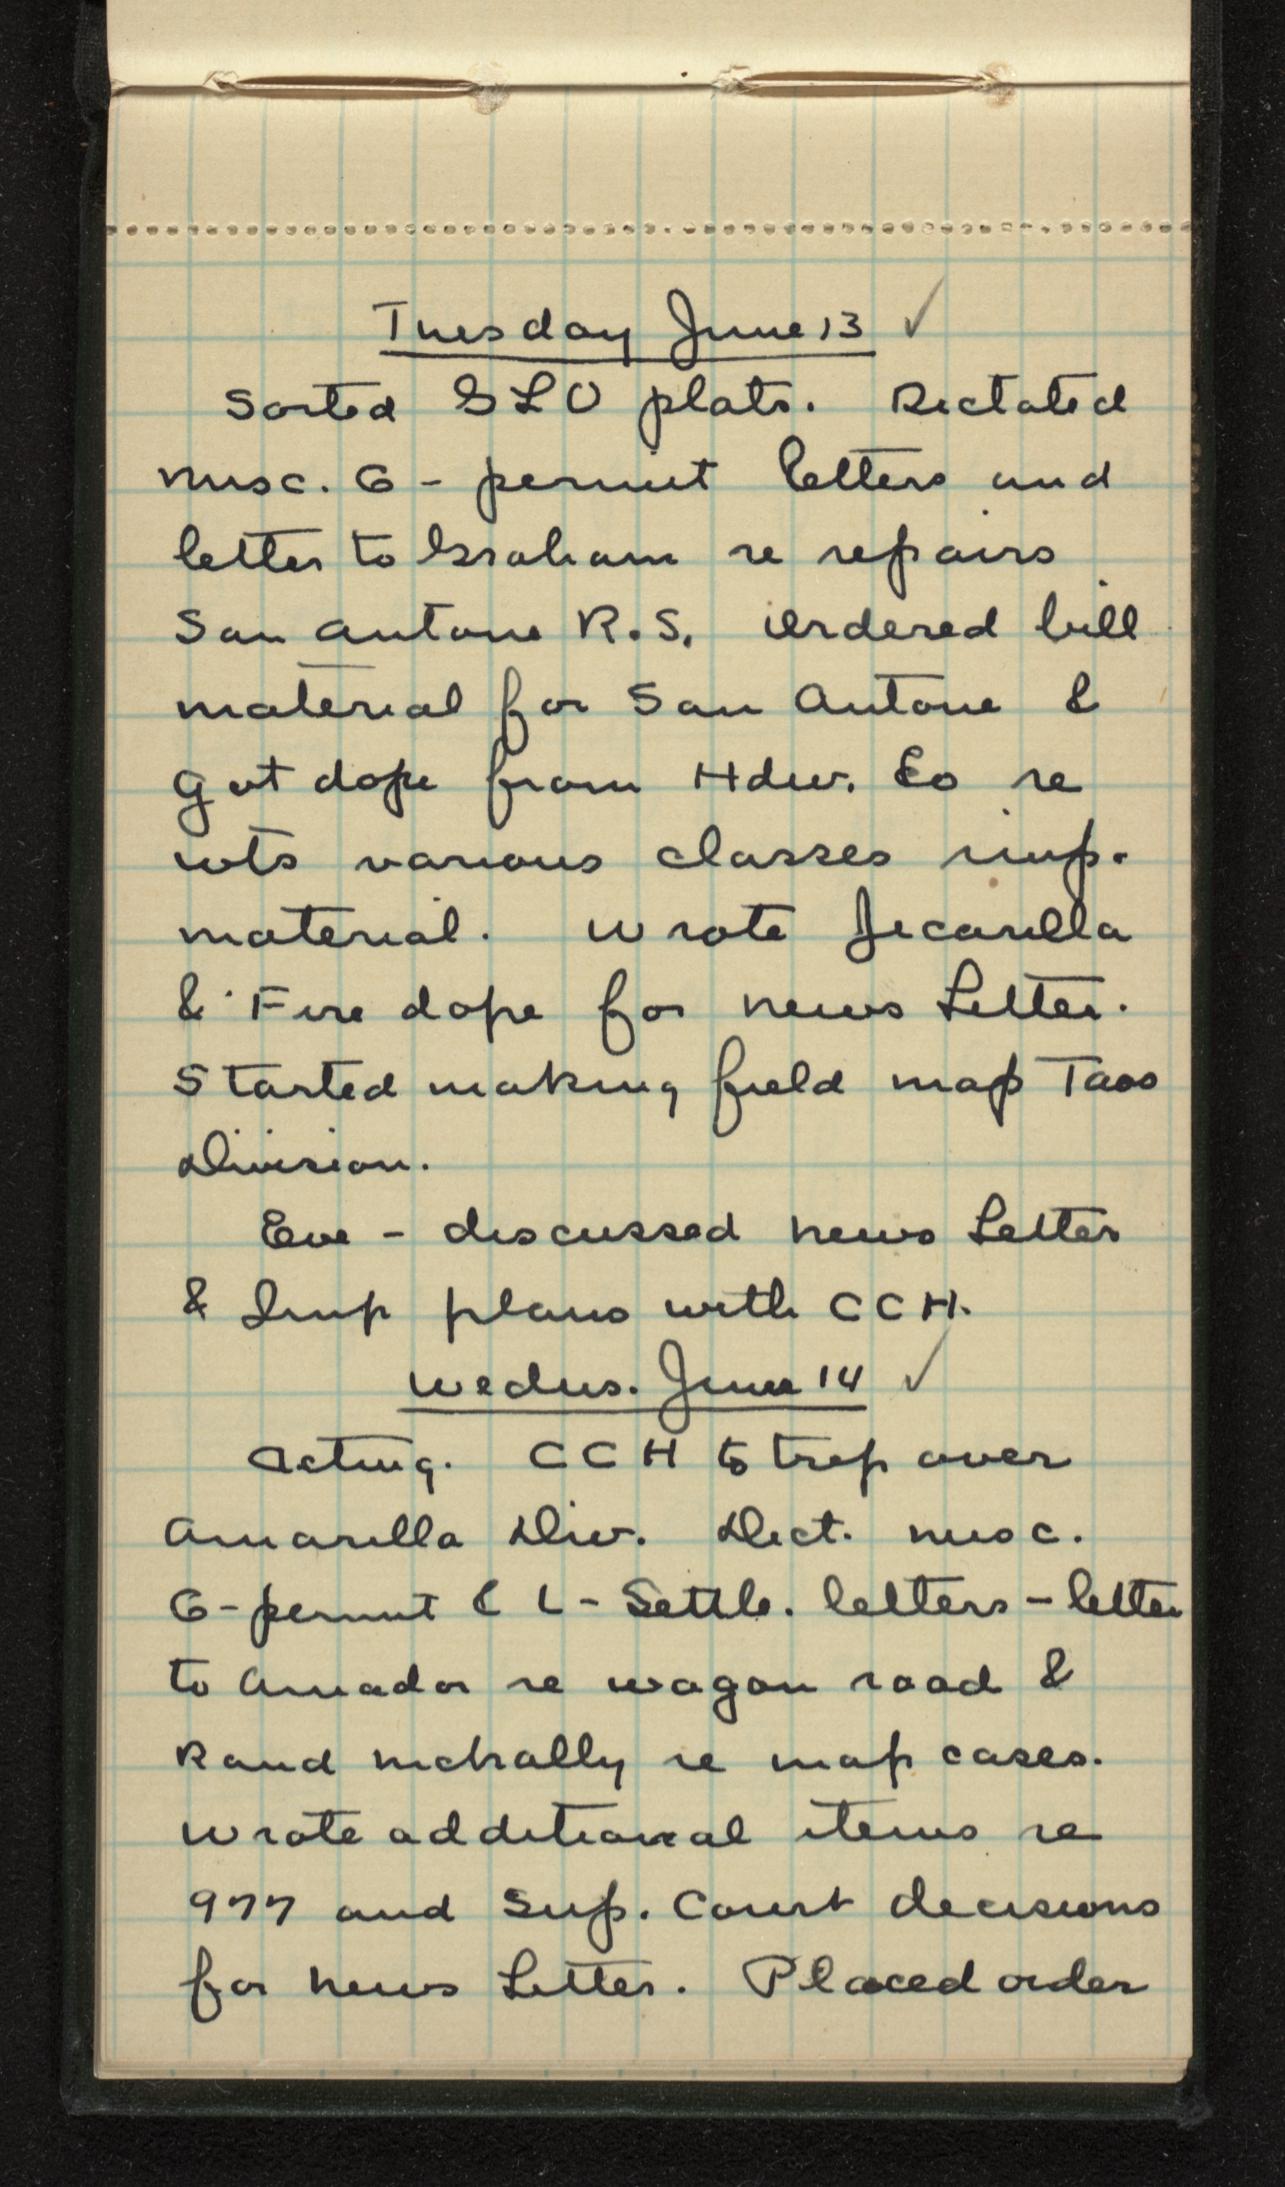 Tuesday June 13 ✓
Sorted GLO plats. Dictated
misc. G-permit letters and
letter to Graham re repairs
San Antone R.S. Ordered bill
material for San Antone &
got dope from Hdw. Co re
wts various classes imp.
material. Wrote Jicarilla
& Fire dope for News Letter.
Started making field map Taos
Division.
Eve - discussed News Letter
& Imp plans with CCH.
Wednes. June 14 ✓
Acting. CCH to trip over
Amarilla Div. Dict. misc.
G-permit & L-Settle. letters - letter
to Amador re wagon road &
Rand McNally re map cases.
Wrote additional items re
977 and Sup. Court decisions
for News Letter. Placed order